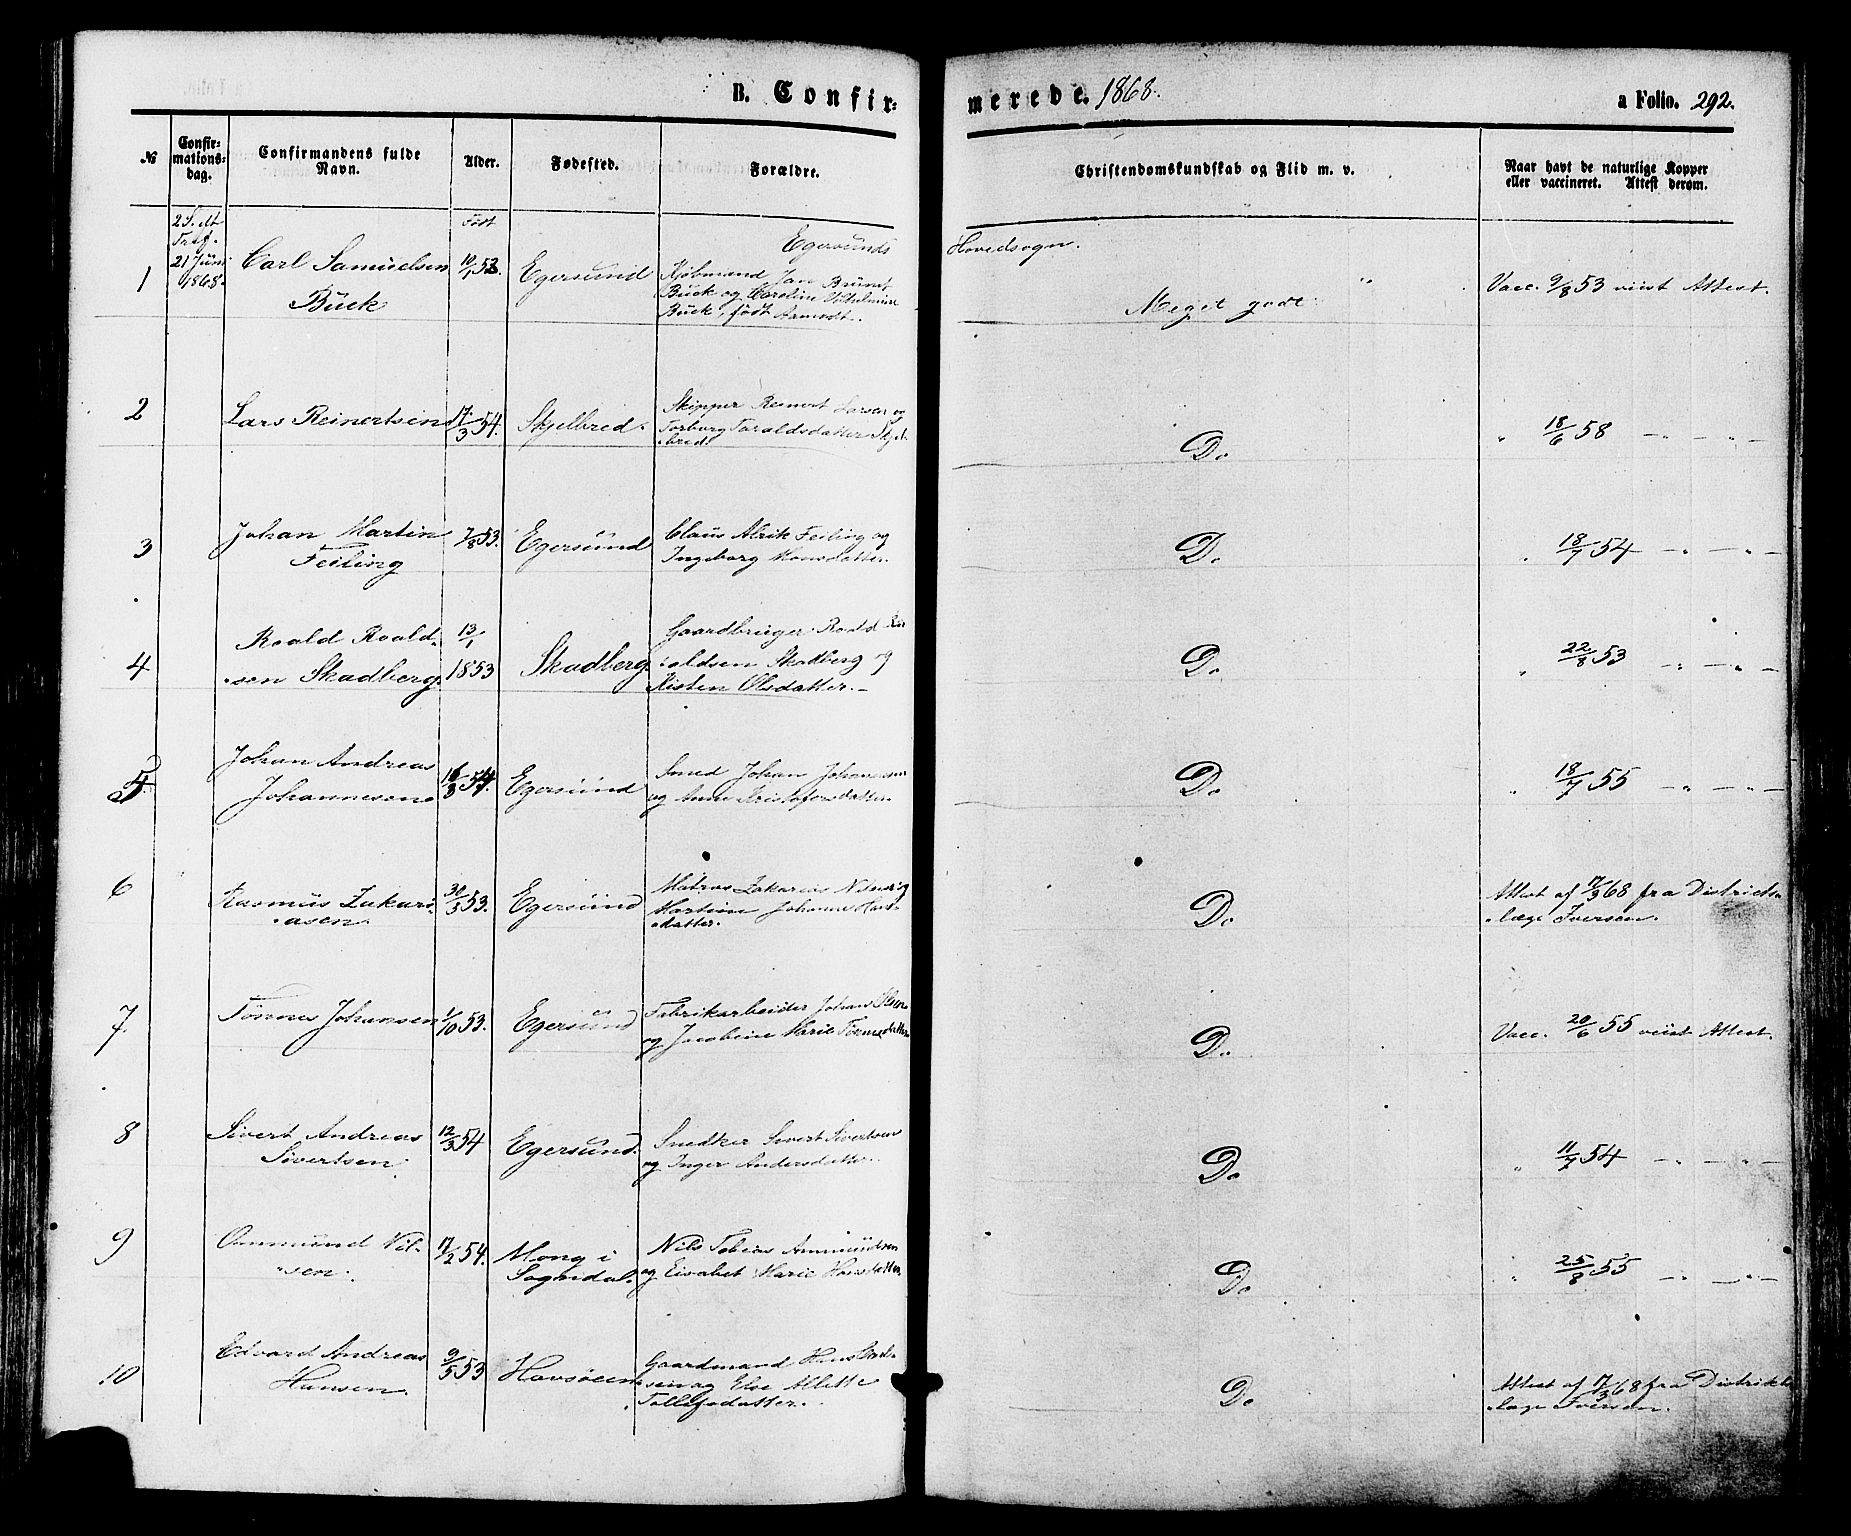 B. Confir-
merede. 1868.
a Folio. 292.
№
Confir-
mations-
dag.
Confirmandens fulde
Navn.
Alder.
Fødested.
Forældre.
Christendomskundskab og Flid m. v.
Naar havt de naturlige Kopper
eller vaccineret. Attest derom.
Egersunds
Hovedsogn.
1
21 Juni
1868.
Carl Samuelsen
Bück
Født
10/1 53.
Egersund
Kjøbmand Jan Brunst
Bück og Caroline Vilhelmine
Bück, født Aarrestt.
Meget godt
Vacc. 9/8 53 viist Attest.
2
Lars Reinertsen
17/3 54.
Skjelbred.
Skipper Reinert Larsen og
Torborg Taraldsdatter Skjel-
bred.
Do
" 18/6 58 — " — " —
3
Johan Martin
Feiling
7/8 53.
Egersund
Claus Alrik Feiling og
Ingeborg Hansdatter.
Do
" 18/7 54 — " — " —
4
Roald Roald-
sen Skadberg.
13/1
1853
Skadberg.
Gaardbruger Roald Ro-
aldsen Skadberg og
Kisten Olsdatter.
Do
" 22/8 53 — " — " —
5
Johan Andreas
Johannesen
16/8 54.
Egersund
Smed Johan Johannesen
og Anne Kristofersdatter.
Do
" 18/7 55 — " — " —
6
Rasmus Zakari-
asen.
30/5 53.
Egersund
Matros Zakarias Nilsen og
Martine Johanne Hans-
datter.
Do
Attest af 17/3 68 fra Districts-
læge Iversen.
7.
Tønnes Johansen
1/10 53.
Egersund
Fabrikarbeider Johan Olsen
og Jacobine Marie Tønnesdatter
Do
Vacc. 20/6 55 viist Attest.
8
Sivert Andreas
Sivertsen.
12/3 54
Egersund.
Snedker Sivert Sivertsen
og Inger Andersdatter.
Do
" 11/7 54 — " — " —
9
Ommund Nil-
sen.
17/2 54.
Mong i
Sogndal.
Nils Tobias Ammundsen
og Elisabet Marie Hansdatter.
Do
" 25/8 55 — " — " —
10
Edvard Andreas
Hansen.
9/5 53
Havsøen
Gaardmand Hans
sen og Else Allette
Tollefsdatter.
Do
Attest af 17/3 68 fra Distrikts-
læge Iversen.